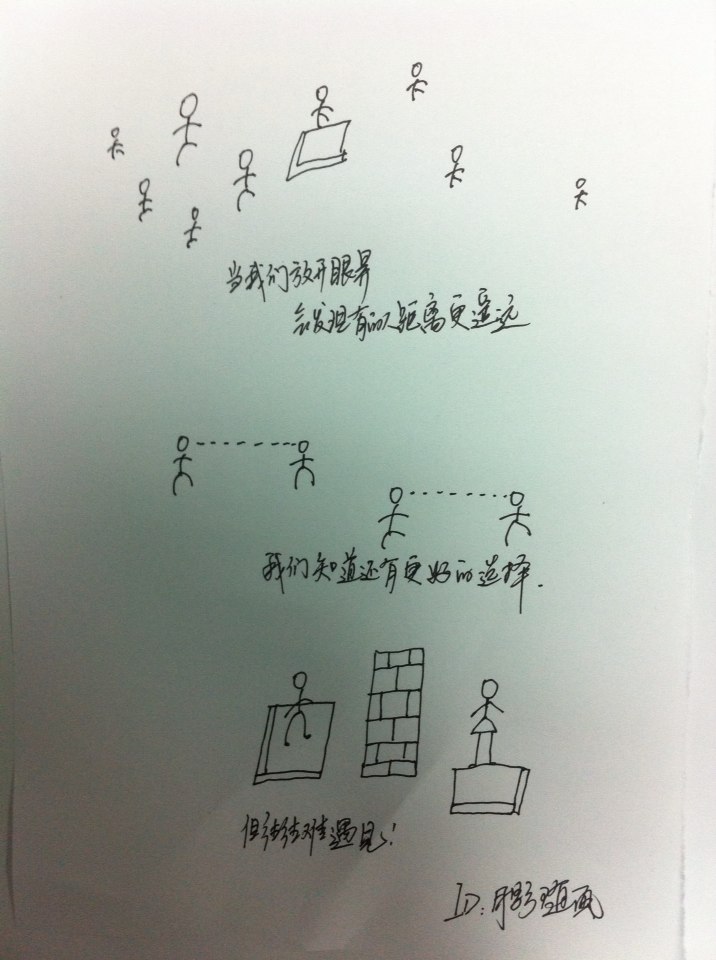 当我们放开眼界
会发现有的人距离更遥远
我们知道还有更好的选择.
但往往难遇见!
ID: